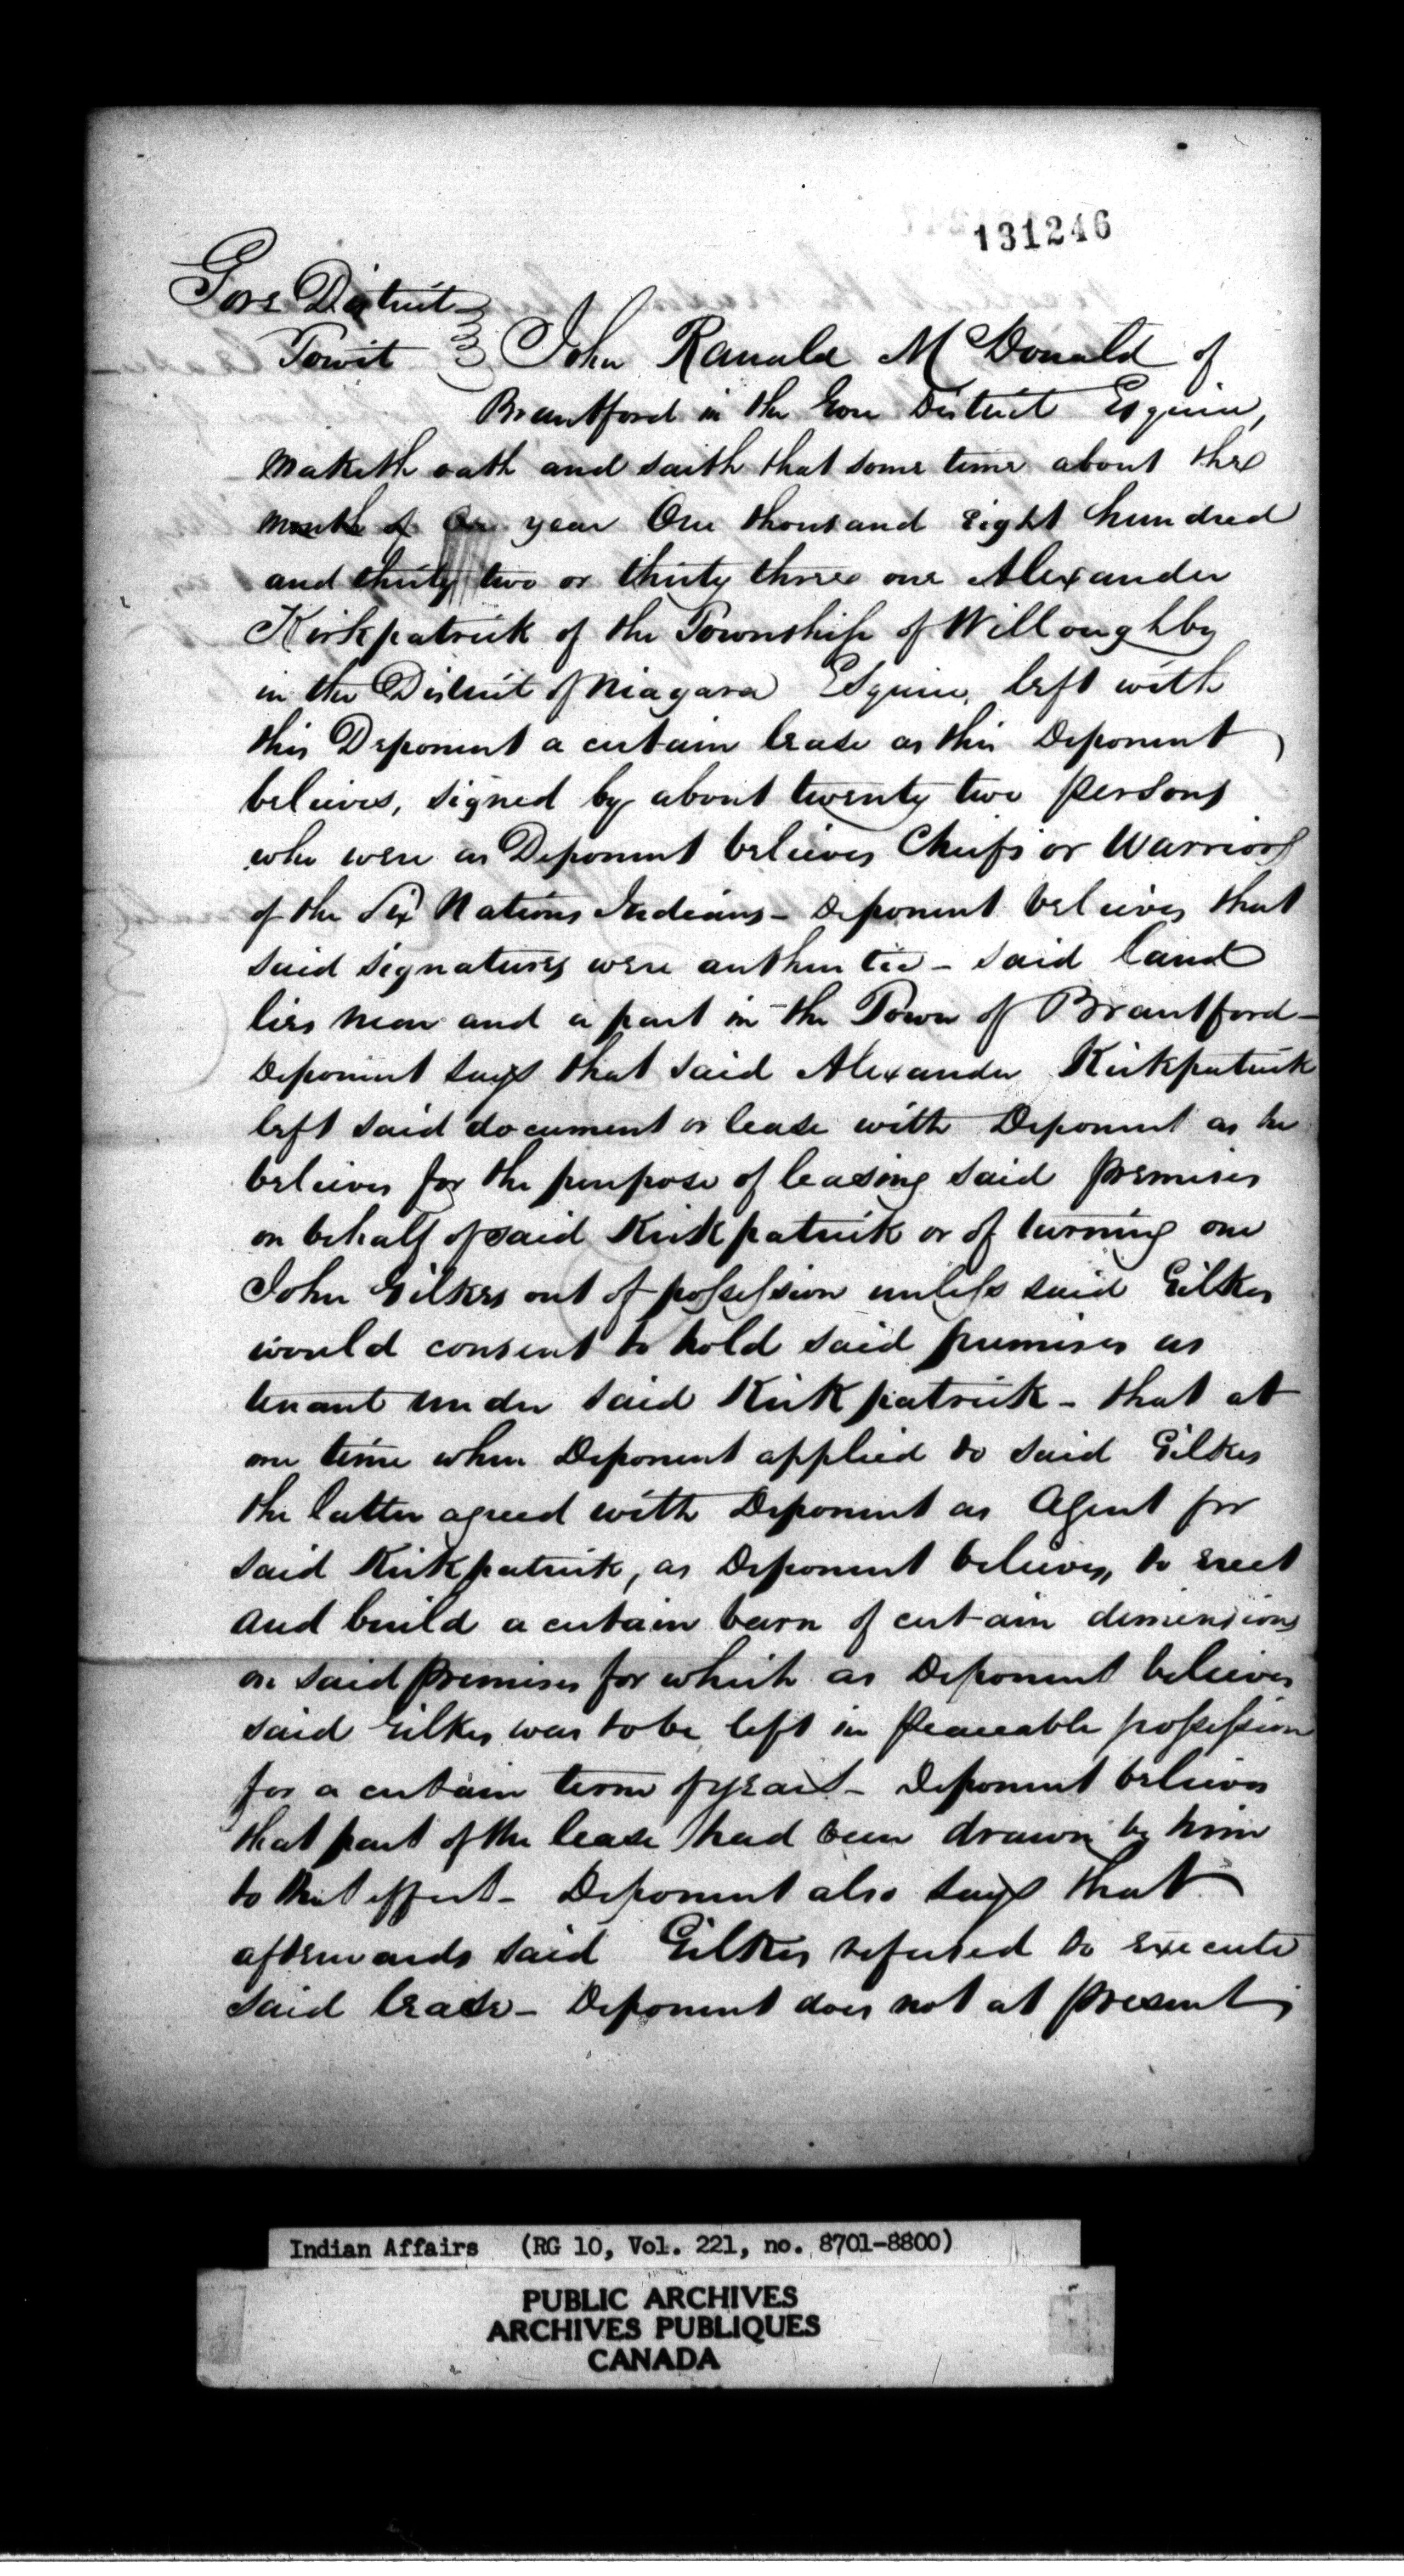 131246
Gore District
Towit John Ranald McDonald of
Brantford in the Gore District Esquire,
maketh oath and saith that some time about the
month of year One thousand Eight hundred
and thirty two or thirty three one Alexander
Kirkpatrick of the Township of Willoughby
in the District of Niagara Esquire, left with
this Deponent a certain lease as this Deponent
believes, signed by about twenty two persons
who were as Deponent believes Chiefs or Warriors
of the Six Nations Indians - Deponent believes that
said signatures were authentic - said land
lies near and a part in the Town of Brantford -
Deponent says that said Alexander Kirkpatrick
left said document or lease with Deponent as he
believes for the purpose of leasing said premises
on behalf of said Kirkpatrick or of turning one
John Gilkes out of possession unless said Gilkes
would consent to hold said premises as
tenant under said Kirkpatrick - that at
one time when Deponent applied to said Gilkes
the latter agreed with Deponent as Agent for
said Kirkpatrick, as Deponent believes, to erect
and build a certain barn of certain dimensions
on said premises for which as Deponent believes
said Gilkes was to be left in peaceable possession
for a certain term of years - Deponent believes
that part of the lease had been drawn by him
to that effect - Deponent also says that
afterwards said Gilkes refused to execute
said lease - Deponent does not at present
Indian Affairs (RG 10, Vol. 221, no. 8701-8800)
PUBLIC ARCHIVES
ARCHIVES PUBLIQUES
CANADA